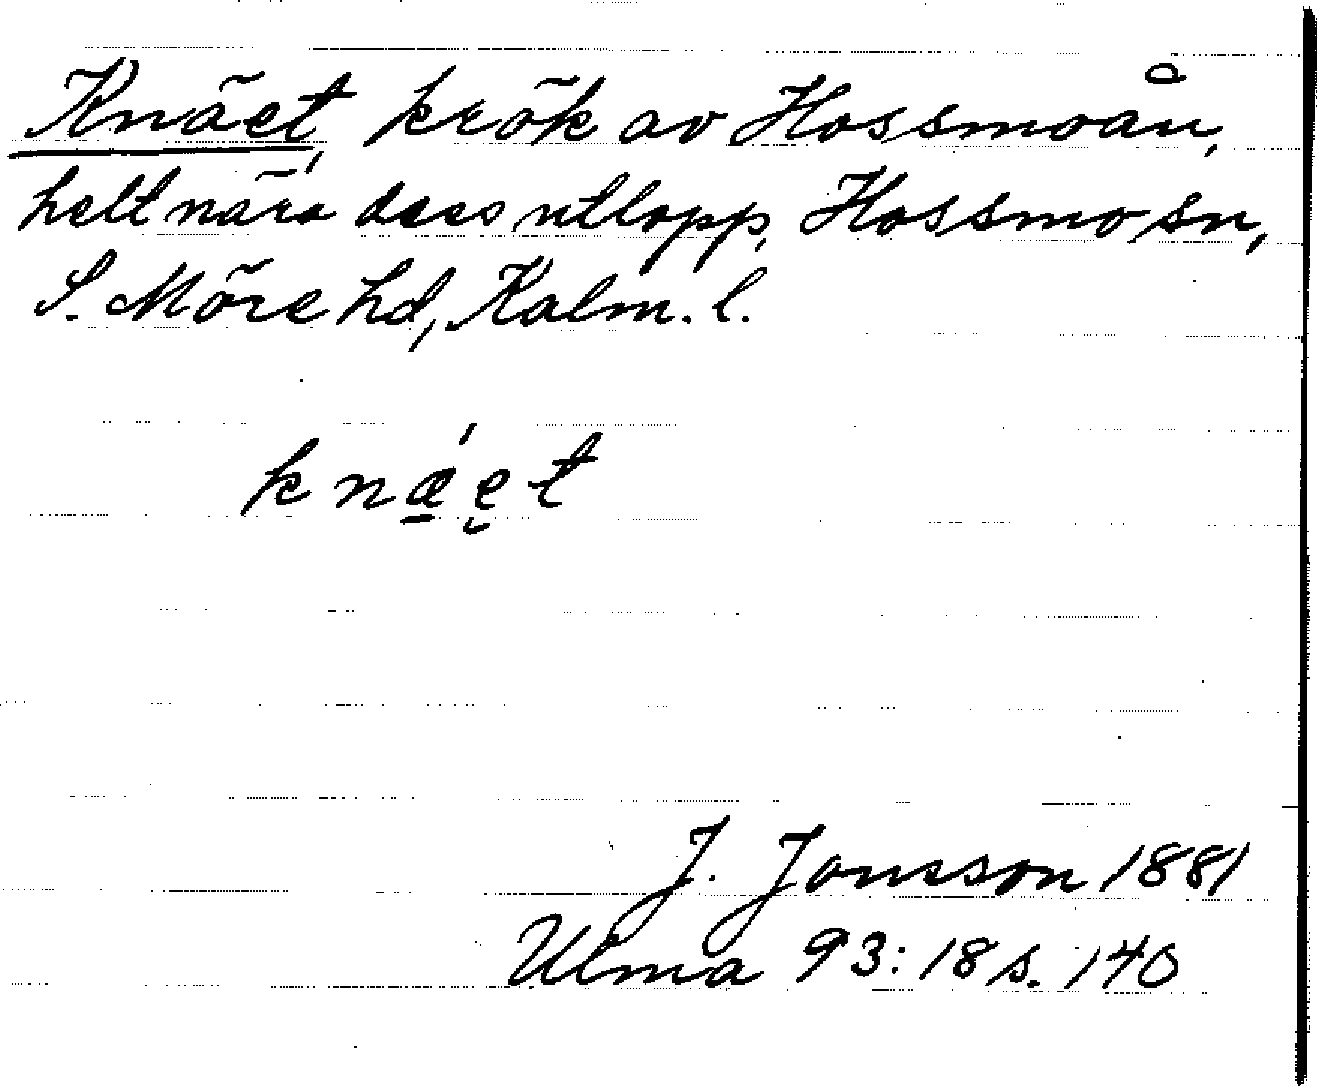 Knäet, krök av Hossmoån,
helt nära dess utlopp, Hossmo sn,
S. Möre hd, Kalm. l.
knǽet
J. Jonsson 1881
Ulma 93:18 s. 140